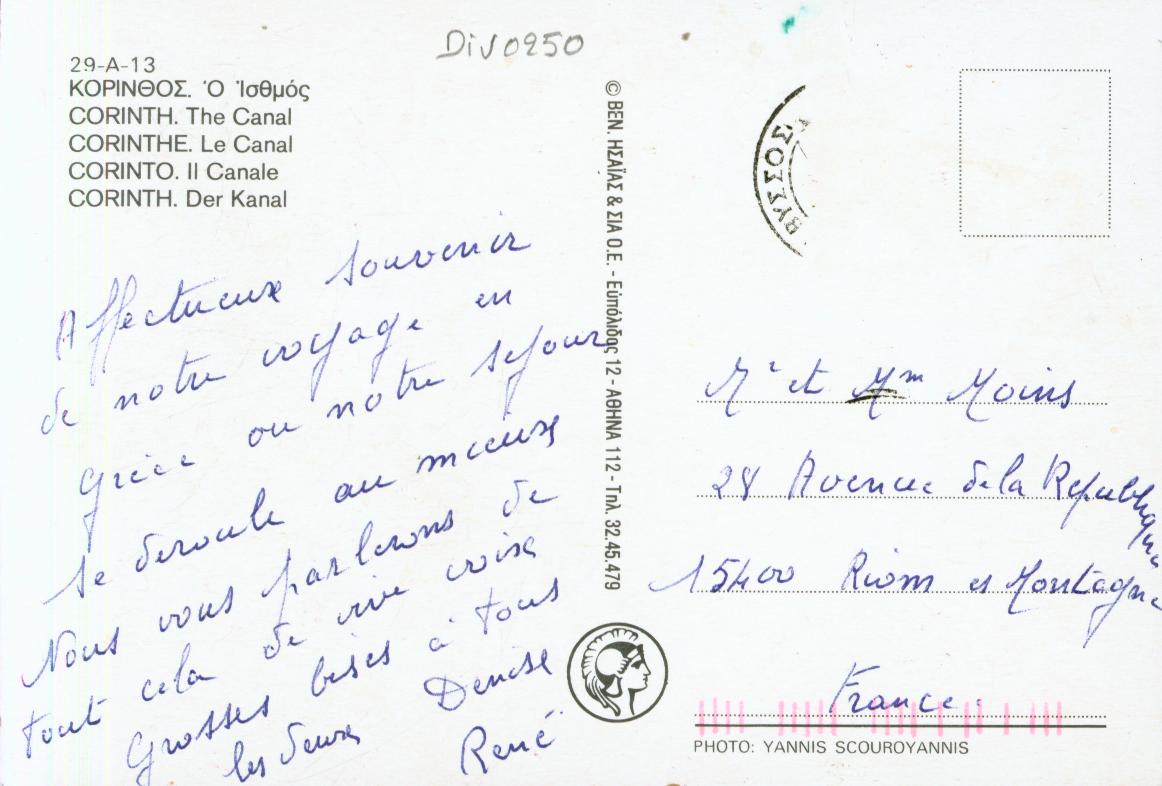 DiV0250
29-A-13
ΚΟΡΙΝΘΟΣ. Ὁ Ἰσθμός
CORINTH. The Canal
CORINTHE. Le Canal
CORINTO. Il Canale
CORINTH. Der Kanal
Affectueux souvenir
de notre voyage en
Grèce ou notre sejour
se deroule au mieux
Nous vous parlerons de
tout cela de vive voix
Grosses bises à tous
les deux Denise
René
© ΒΕΝ. ΗΣΑΪΑΣ & ΣΙΑ Ο.Ε. - Εὐπόλιδος 12 - ΑΘΗΝΑ 112 - Τηλ. 32.45.479
ΒΥΣΣΟΣ
Mr et Mme Moins
28 Avenue de la Republique
15400 Riom es Montagne
France.
PHOTO: YANNIS SCOUROYANNIS